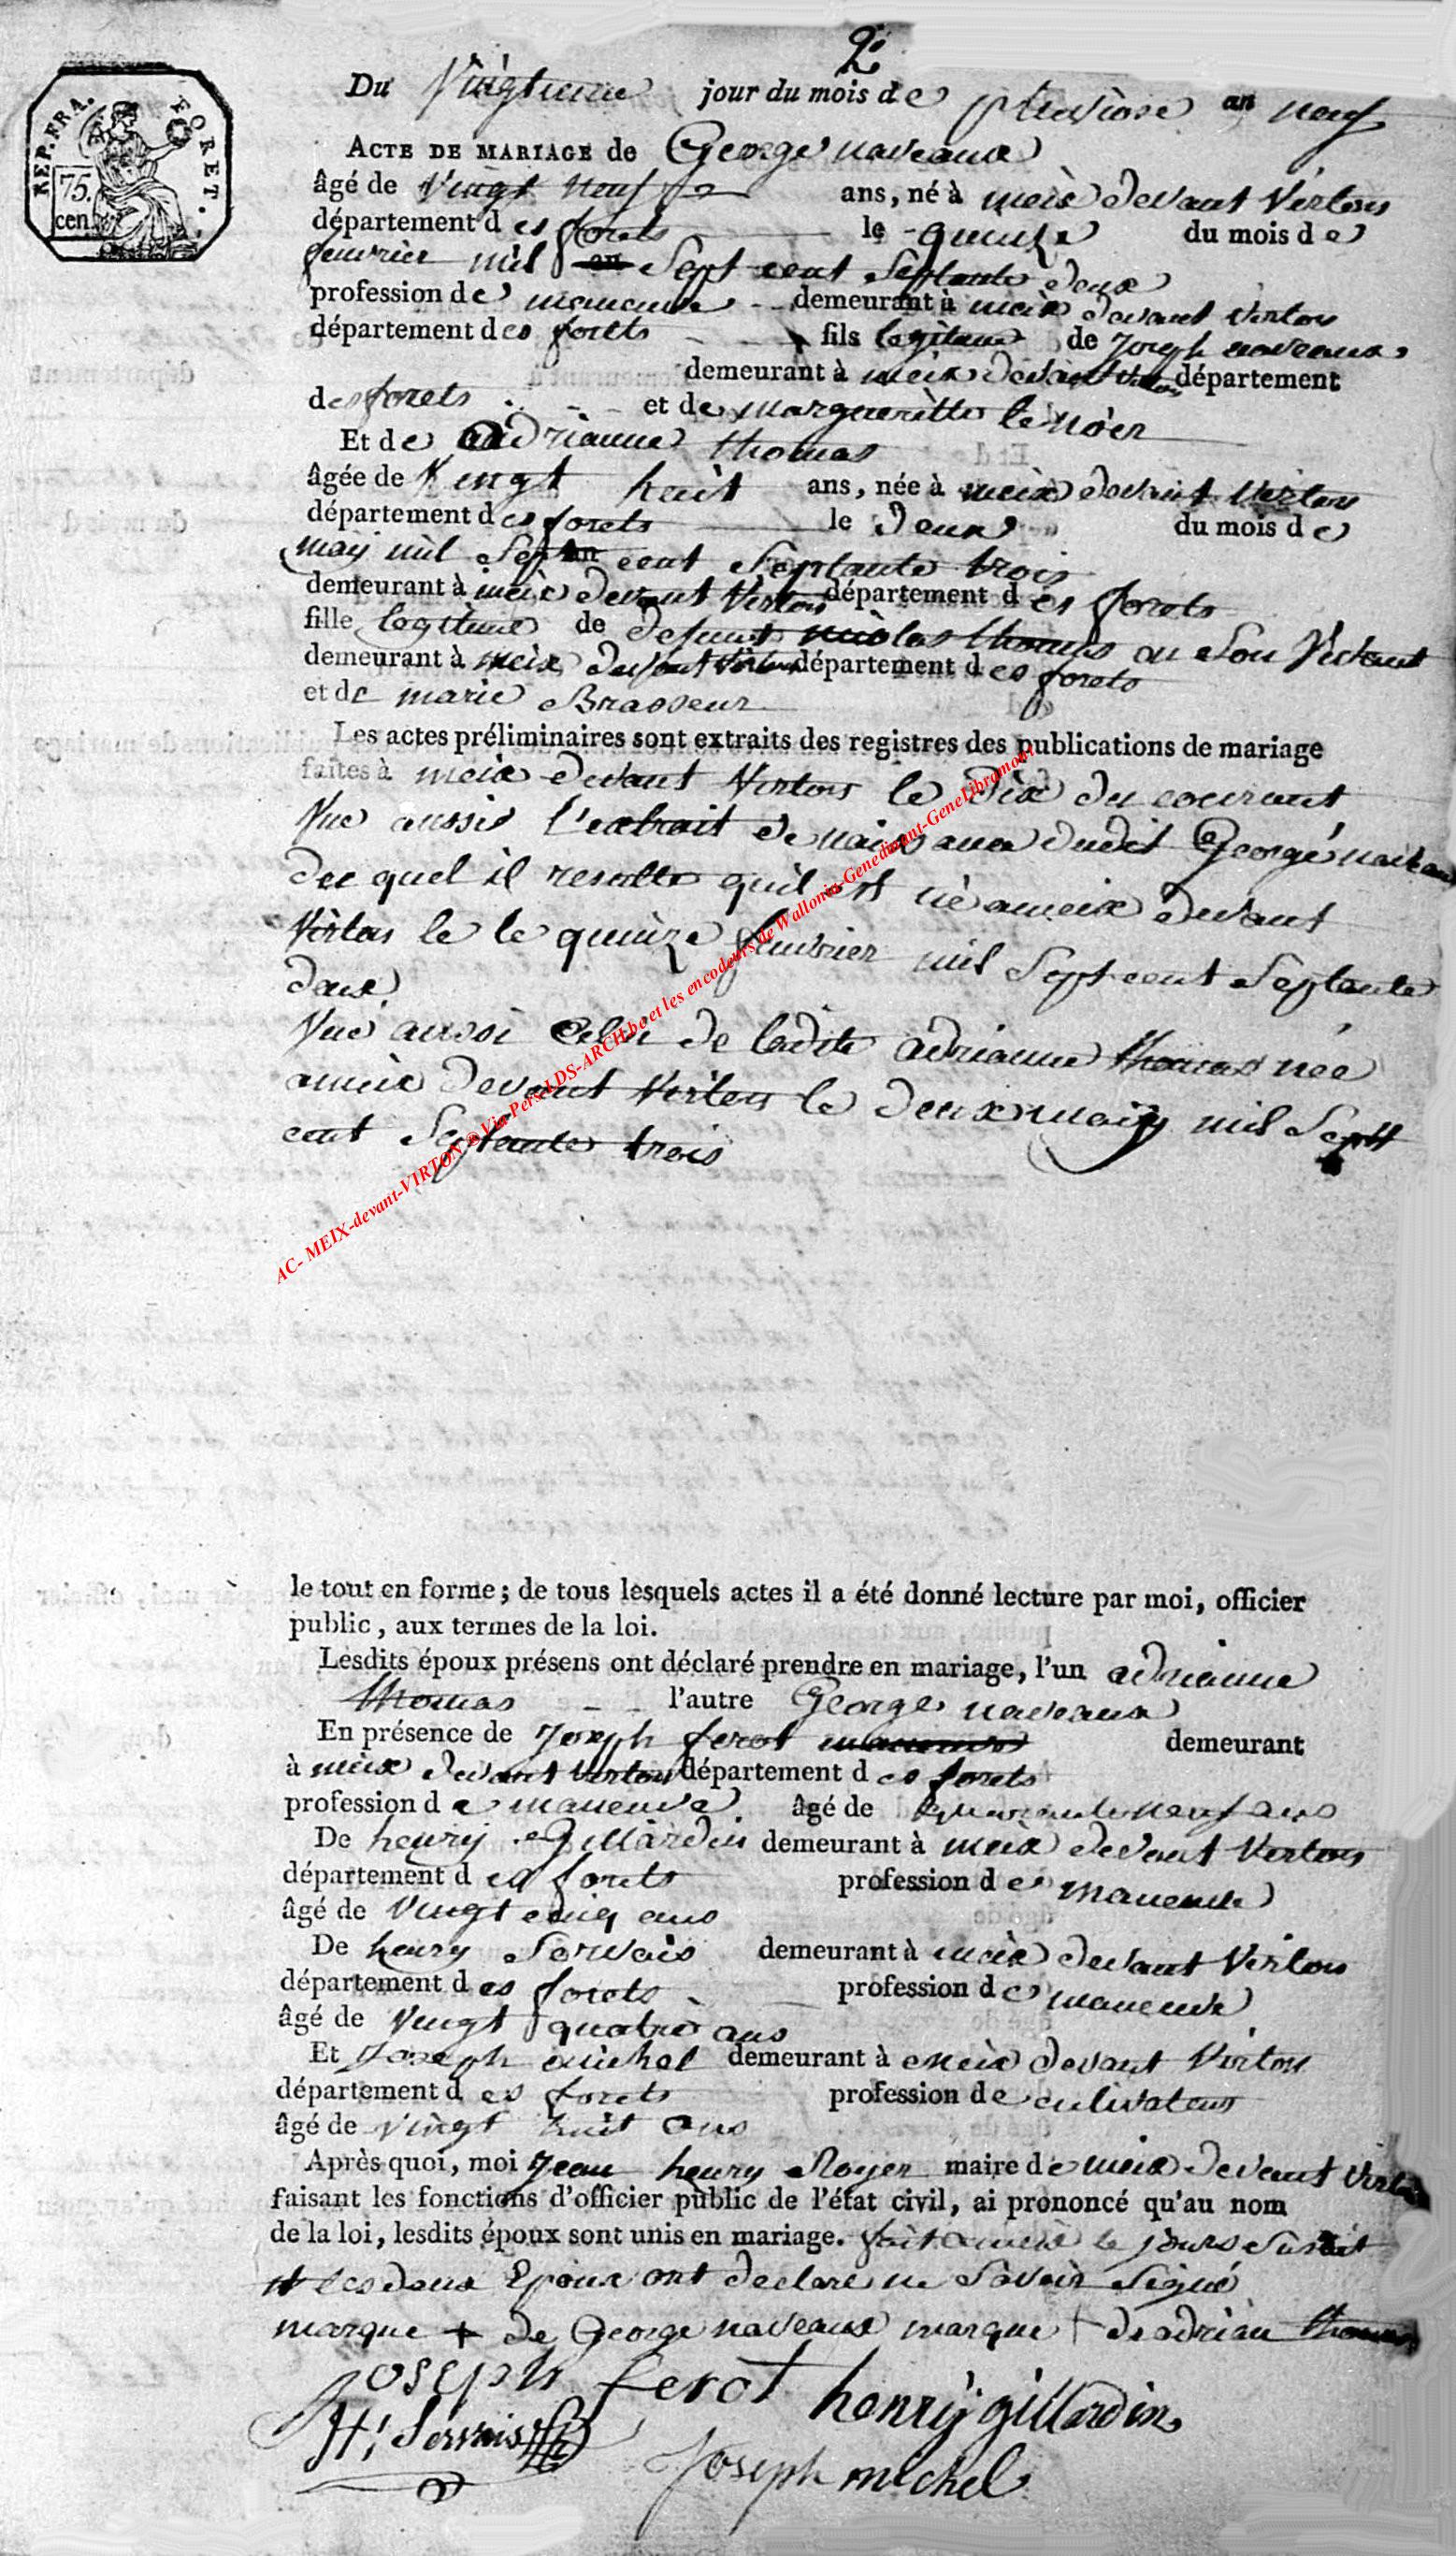 2e
REP. FRA. FORET.
75. cen.
Du Vingtieme jour du mois de pluviose an neuf
ACTE DE MARIAGE de George naveaux
âgé de vingt neuf ans, né à meix devant Virton
département des forets le quinze du mois de
feuvrier mil an sept cent septante deux
profession de maneuve demeurant à meix devant virton
département des forets fils legitime de Joseph naveaux
demeurant à meix devant virton département
des forets et de margueritte le noir
Et de adrianne thomas
âgée de Vingt huit ans, née à meix devant Virton
département des forets le deux du mois de
maij mil sept an cent septante trois
demeurant à meix devant Virton département des forets
fille legitime de defunt nicolas thomas en son Vivant
demeurant à meix devant virton département des forets
et de marie Brasseur
Les actes préliminaires sont extraits des registres des publications de mariage
faites à meix devant Virton le dix du courant
Vue aussi l'extrait de naissance dudit George naveaux
du quel il resulte quil est né a meix devant
Virton le le quinze feuvrier mil sept cent septante
deux
Vue aussi celui de ladite adrianne thomas née
a meix devant Virton le deux maij mil sept
cent septante trois
AC- MEIX-devant-VIRTON® Via Pers LDS-ARCH.be et les encodeurs de Wallonia-Genedinant-GeneLibramont
le tout en forme; de tous lesquels actes il a été donné lecture par moi, officier
public, aux termes de la loi.
Lesdits époux présens ont déclaré prendre en mariage, l'un adrianne
thomas l'autre George naveaux
En présence de Joseph ferot demeurant
à meix devant virton département des forets
profession de maneuve âgé de quarante neuf ans
De henry Gillardin demeurant à meix devant Virton
département des forets profession de maneuve
âgé de Vingt cinq ans
De henry Servais demeurant à meix devant Virton
département des forets profession de maneuve
âgé de Vingt quatre ans
Et Joseph michel demeurant à meix devant Virton
département des forets profession de cultivateur
âgé de vingt huit ans
Après quoi, moi Jean henry Royer maire de meix devant Virton
faisant les fonctions d'officier public de l'état civil, ai prononcé qu'au nom
de la loi, lesdits époux sont unis en mariage. fait a meix le jours susdit
et les deux Epoux ont declaré ne savoir signé
marque + de George naveaux marque + de adrian thomas
Joseph ferot henrÿ gillardin
H: Servais
Joseph michel